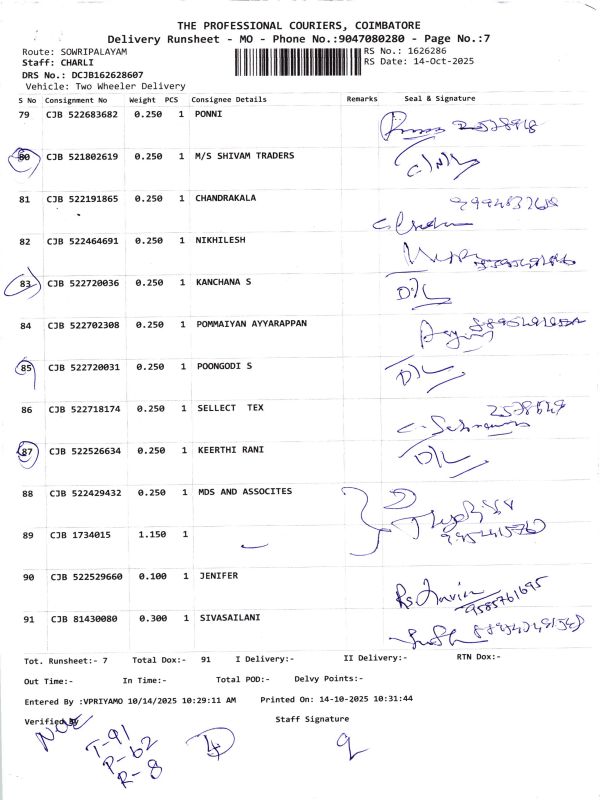 THE PROFESSIONAL COURIERS, COIMBATORE
Delivery Runsheet - MO - Phone No.:9047080280 - Page No.:7
Route: SOWRIPALAYAM RS No.: 1626286
Staff: CHARLI RS Date: 14-Oct-2025
DRS No.: DCJB162628607
Vehicle: Two Wheeler Delivery
S No Consignment No Weight PCS Consignee Details Remarks Seal & Signature
79 CJB 522683682 0.250 1 PONNI
80 CJB 521802619 0.250 1 M/S SHIVAM TRADERS
81 CJB 522191865 0.250 1 CHANDRAKALA
82 CJB 522464691 0.250 1 NIKHILESH
83 CJB 522720036 0.250 1 KANCHANA S D/L
84 CJB 522702308 0.250 1 POMMAIYAN AYYARAPPAN
85 CJB 522720031 0.250 1 POONGODI S D/L
86 CJB 522718174 0.250 1 SELLECT TEX
87 CJB 522526634 0.250 1 KEERTHI RANI D/L
88 CJB 522429432 0.250 1 MDS AND ASSOCITES
89 CJB 1734015 1.150 1
90 CJB 522529660 0.100 1 JENIFER 9585761695
91 CJB 81430080 0.300 1 SIVASAILANI
Tot. Runsheet:- 7 Total Dox:- 91 I Delivery:- II Delivery:- RTN Dox:-
Out Time:- In Time:- Total POD:- Delvy Points:-
Entered By :VPRIYAMO 10/14/2025 10:29:11 AM Printed On: 14-10-2025 10:31:44
Verified By Staff Signature
T-91
P-62
R-8